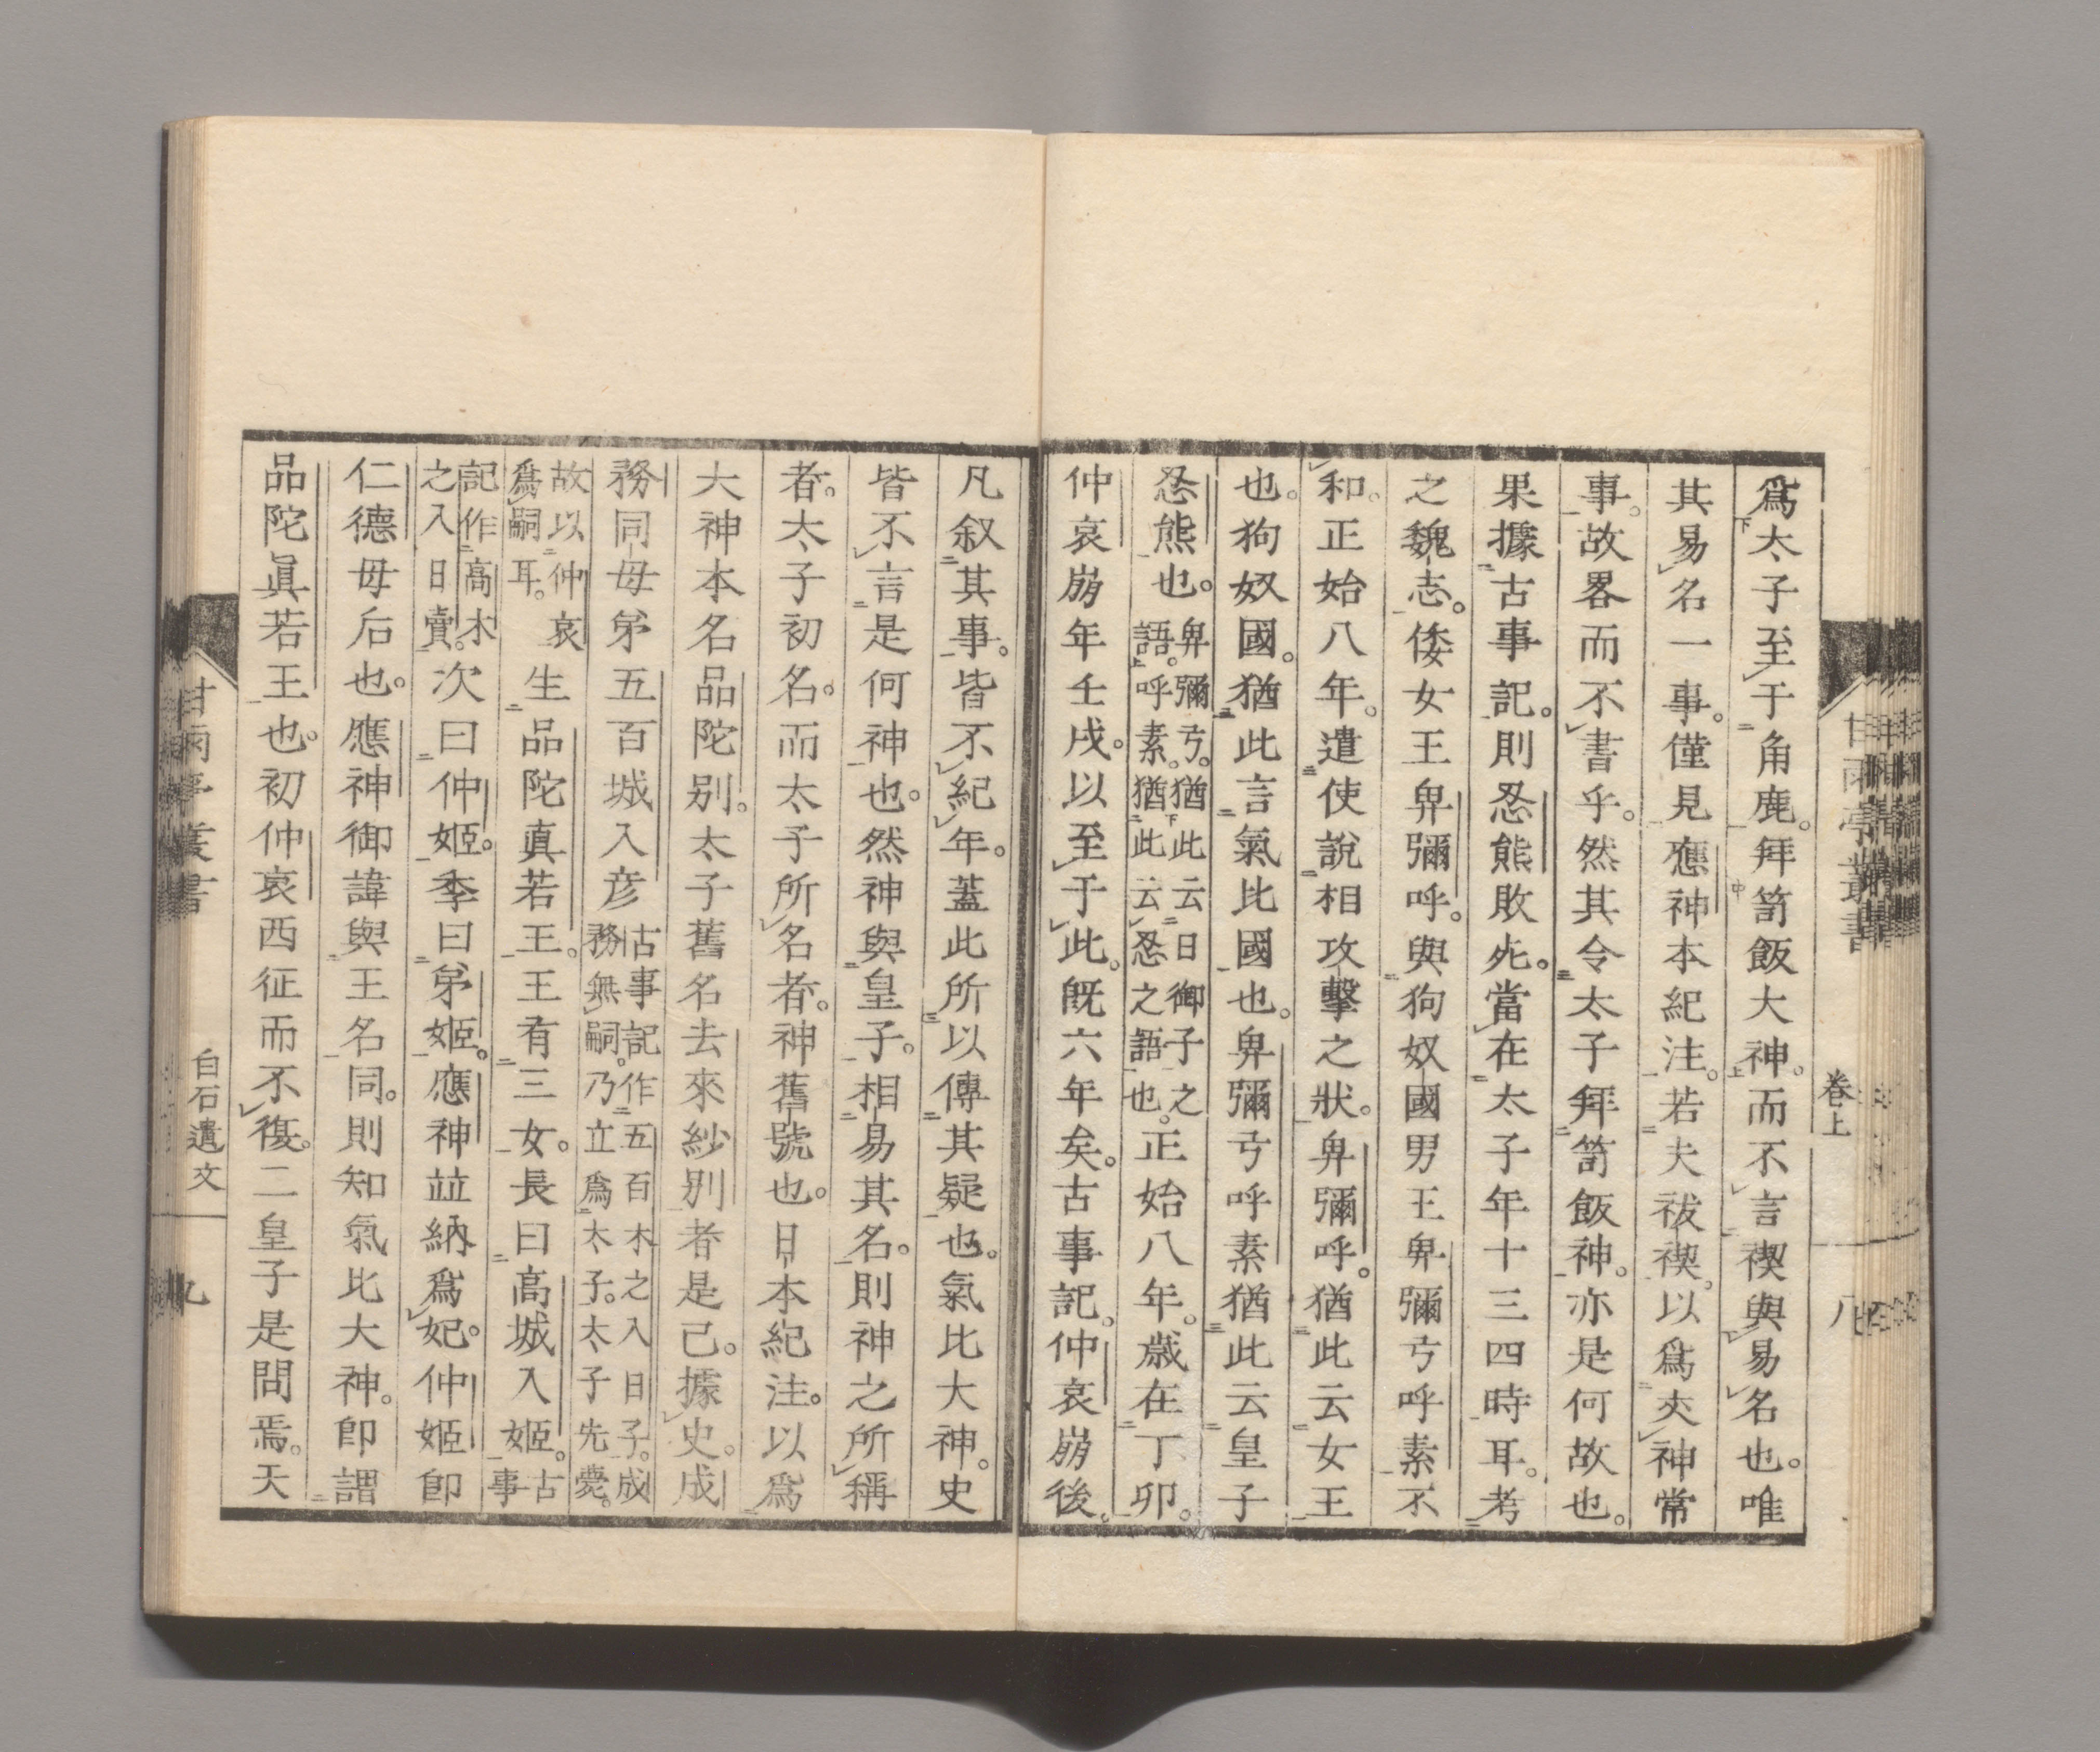 爲太子至于角鹿。拜笥飯大神。而不言禊與易名也。唯
其易名一事。僅見應神本紀注。若夫祓禊。以爲夾神常
事。故畧而不書乎。然其令太子拜笥飯神。亦是何故也。
果據古事記。則忍熊敗死。當在太子年十三四時耳。考
之魏志。倭女王卑彌呼。與狗奴國男王卑彌弓呼素不
和。正始八年。遣使說相攻擊之狀。卑彌呼。猶此云女王
也。狗奴國。猶此言氣比國也。卑彌弓呼素猶此云皇子
忍熊也。卑彌弓。猶此云日御子之語。呼素。猶此云忍之語也。正始八年。歲在丁卯。
仲哀崩年壬戌。以至于此。既六年矣。古事記。仲哀崩後。
凡叙其事。皆不紀年。蓋此所以傳其疑也。氣比大神。史
皆不言是何神也。然神與皇子。相易其名。則神之所稱
者。太子初名。而太子所名者。神舊號也。日本紀注。以爲
大神本名品陀別。太子舊名去來紗別者是已。據史。成
務同母弟五百城入彥古事記作五百木之入日子。成務無嗣。乃立爲太子。太子先薨。
故以仲哀爲嗣耳。生品陀真若王。王有三女。長曰高城入姬。古事
記作高木之入日賣。次曰仲姬。季曰弟姬。應神竝納爲妃。仲姬卽
仁德母后也。應神御諱與王名同。則知氣比大神。卽謂
品陀眞若王也。初仲哀西征而不復。二皇子是問焉。天
甘雨亭叢書
卷上
八
甘雨亭叢書
白石遺文
九